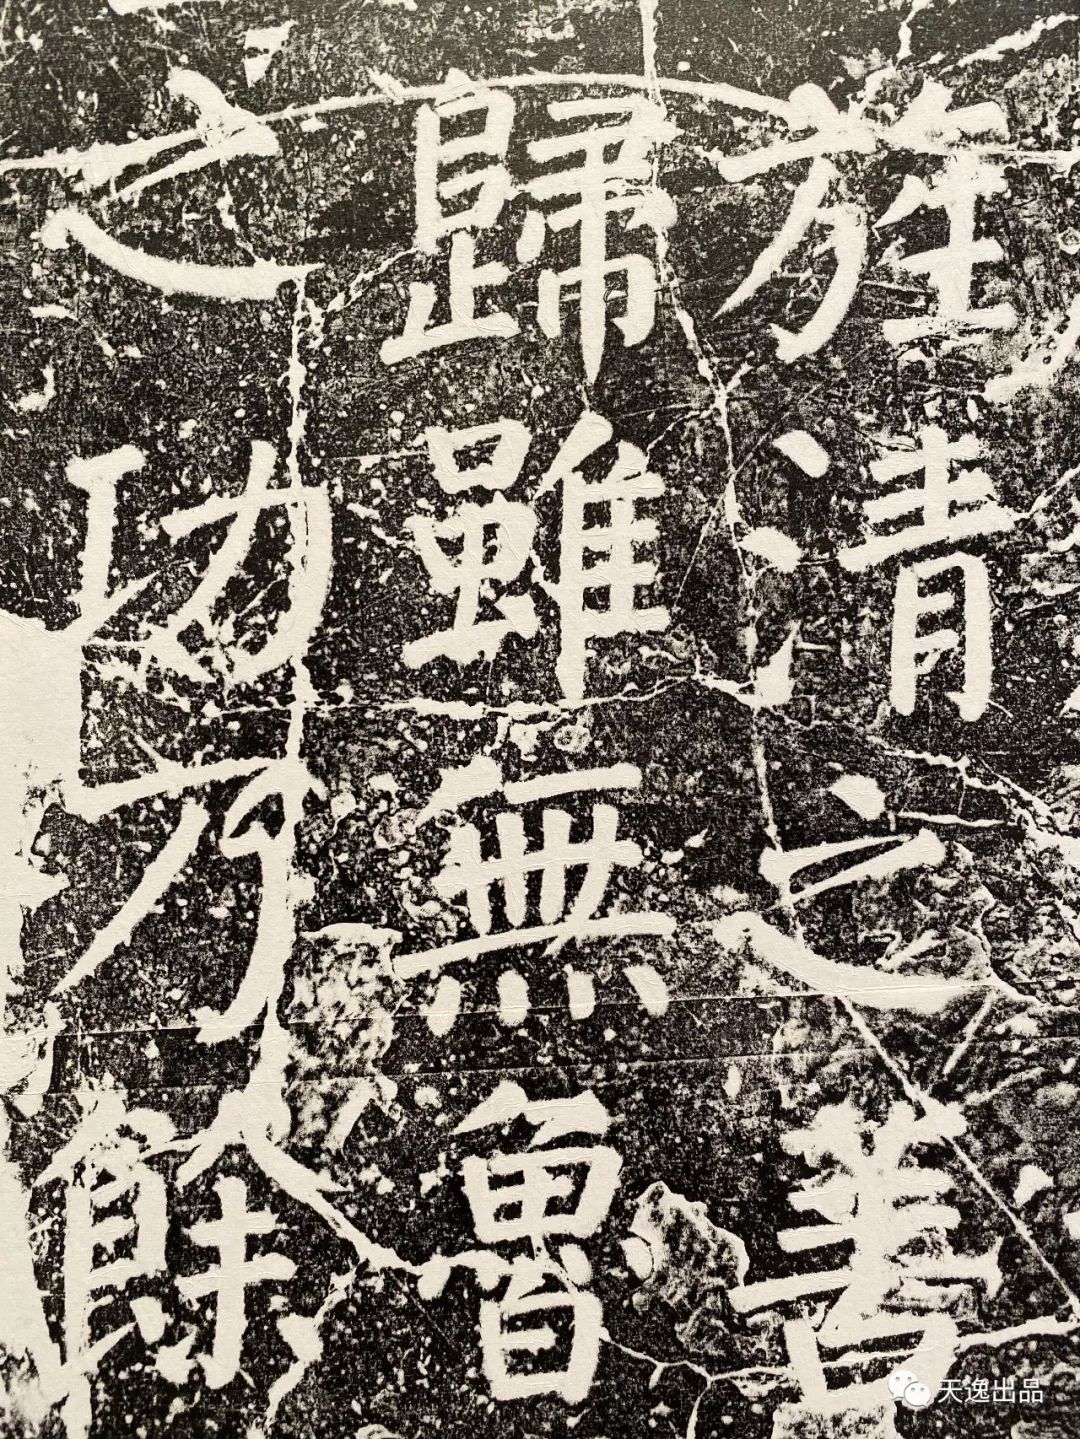 旌清之善
歸雖無魯
之功乃餘
天逸出品